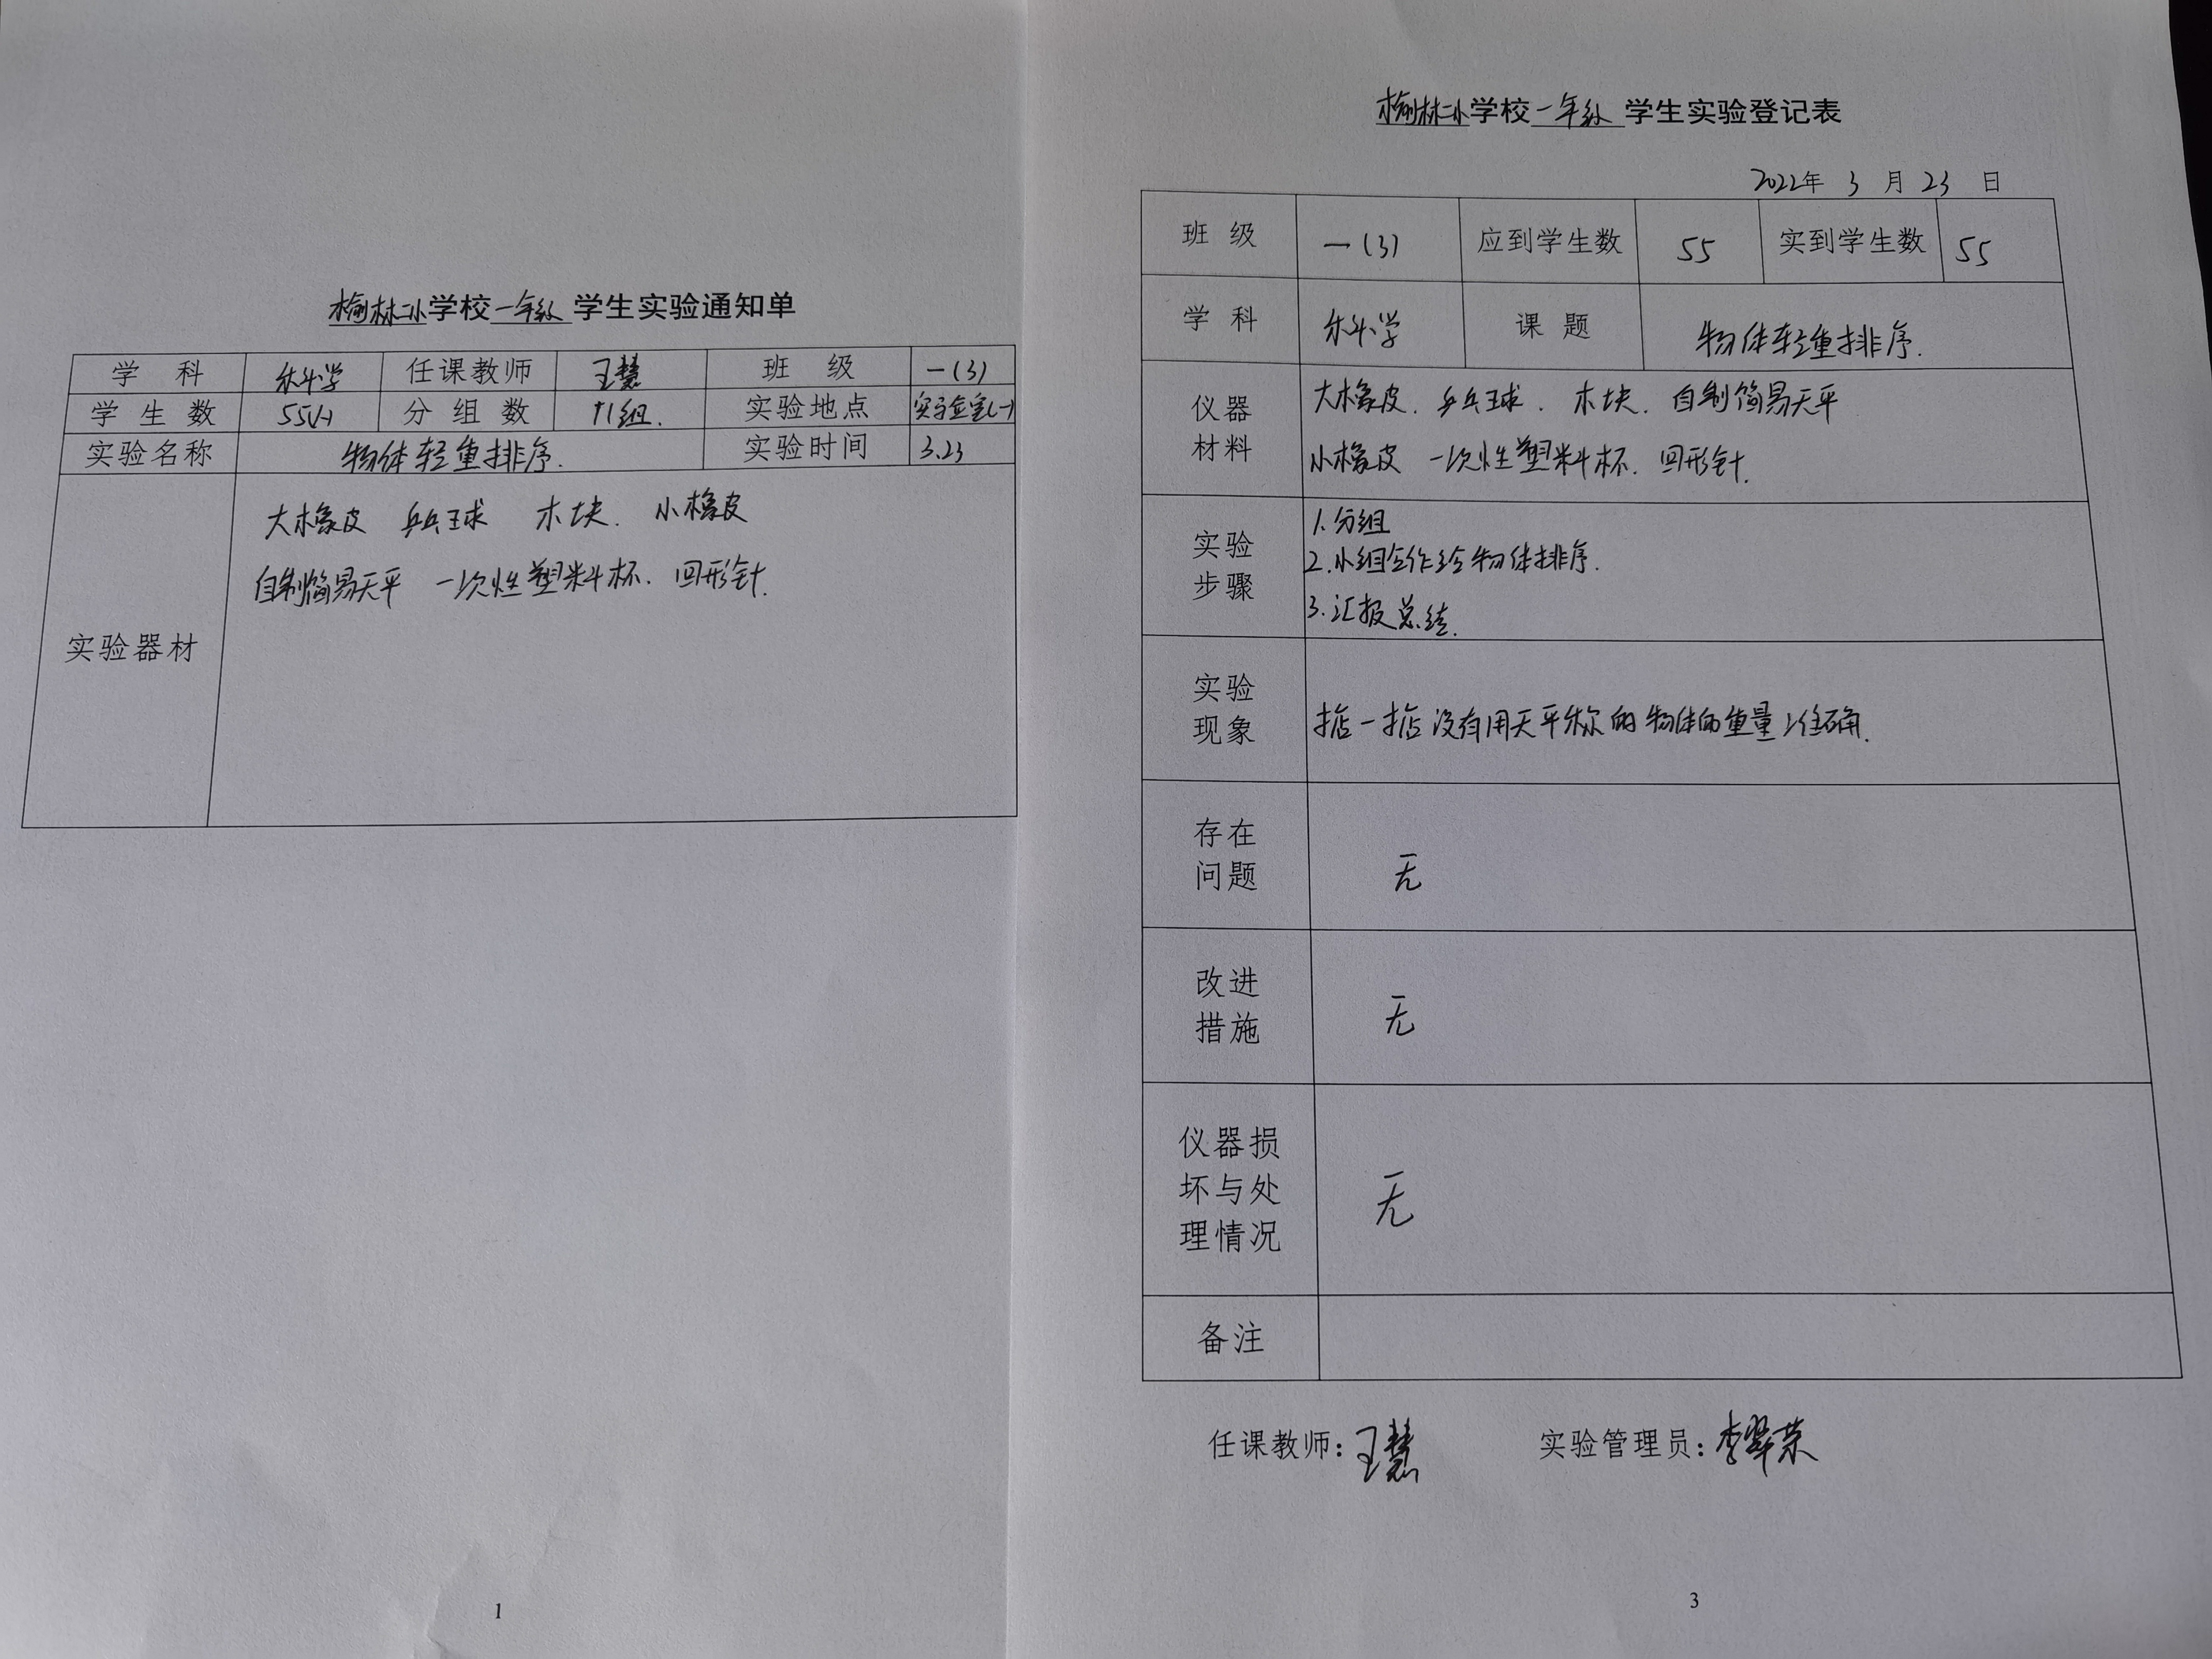 榆林二小学校一年级学生实验通知单
学 科 科学 任课教师 王慧 班 级 一(3)
学生数 55人 分组数 11组. 实验地点 实验室(一)
实验名称 物体轻重排序. 实验时间 3.23
大橡皮 乒乓球 木块. 小橡皮
自制简易天平 一次性塑料杯. 回形针.
实验器材
1
榆林二小学校一年级学生实验登记表
2022年 3 月 23 日
班 级 一(3) 应到学生数 55 实到学生数 55
学 科 科学 课 题 物体轻重排序.
仪器
材料
大橡皮. 乒乓球. 木块. 自制简易天平
小橡皮 一次性塑料杯. 回形针.
实验
步骤
1.分组
2.小组合作给物体排序.
3.汇报总结.
实验
现象
掂一掂没有用天平称的物体的重量准确.
存在
问题
无
改进
措施
无
仪器损
坏与处
理情况
无
备注
任课教师:王慧 实验管理员:李翠荣
3